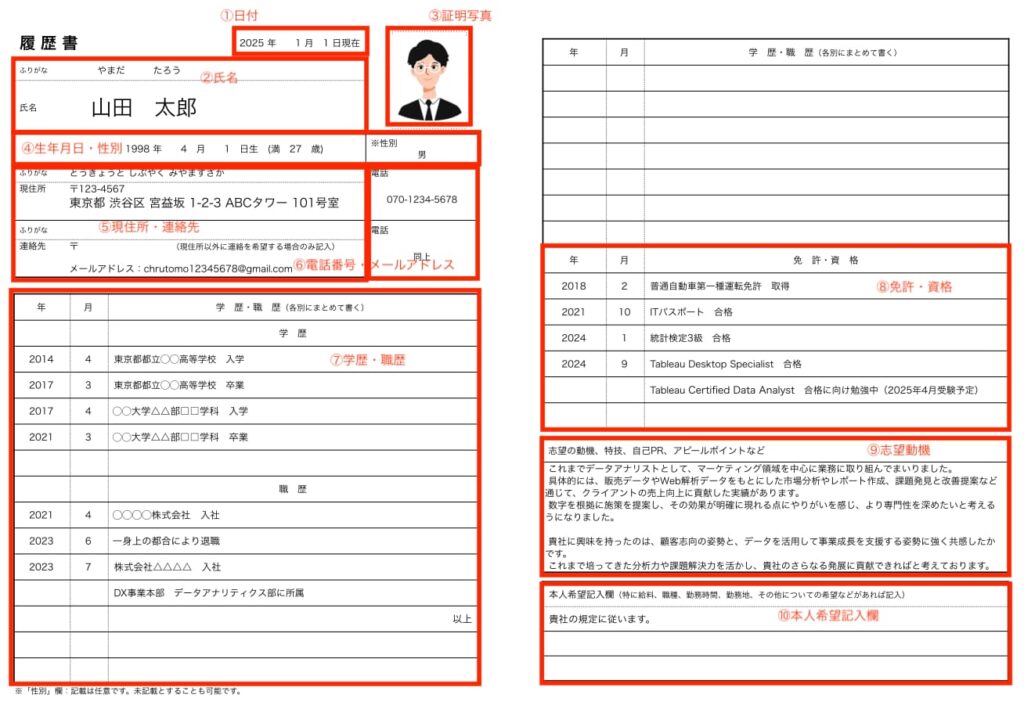 ①日付
③証明写真
履歴書
2025 年 1 月 1 日現在
ふりがな やまだ たろう
②氏名
氏名 山田 太郎
④生年月日・性別 1998 年 4 月 1 日生 (満 27 歳)
※性別
男
ふりがな とうきょうと しぶやく みやますざか
電話
現住所 〒123-4567
東京都 渋谷区 宮益坂 1-2-3 ABCタワー 101号室
070-1234-5678
⑤現住所・連絡先
ふりがな
電話
連絡先 〒 (現住所以外に連絡を希望する場合のみ記入)
同上
メールアドレス：chrutomo12345678@gmail.com
⑥電話番号・メールアドレス
年 月 学 歴・職 歴 (各別にまとめて書く)
学 歴
2014 4 東京都都立○○高等学校 入学
⑦学歴・職歴
2017 3 東京都都立○○高等学校 卒業
2017 4 ○○大学△△部□□学科 入学
2021 3 ○○大学△△部□□学科 卒業
職 歴
2021 4 ○○○○株式会社 入社
2023 6 一身上の都合により退職
2023 7 株式会社△△△△ 入社
DX事業本部 データアナリティクス部に所属
以上
※「性別」欄：記載は任意です。未記載とすることも可能です。
年 月 学 歴・職 歴 (各別にまとめて書く)
年 月 免 許・資 格
2018 2 普通自動車第一種運転免許 取得
⑧免許・資格
2021 10 ITパスポート 合格
2024 1 統計検定3級 合格
2024 9 Tableau Desktop Specialist 合格
Tableau Certified Data Analyst 合格に向け勉強中（2025年4月受験予定）
志望の動機、特技、自己PR、アピールポイントなど
⑨志望動機
これまでデータアナリストとして、マーケティング領域を中心に業務に取り組んでまいりました。
具体的には、販売データやWeb解析データをもとにした市場分析やレポート作成、課題発見と改善提案など
通じて、クライアントの売上向上に貢献した実績があります。
数字を根拠に施策を提案し、その効果が明確に現れる点にやりがいを感じ、より専門性を深めたいと考える
うになりました。
貴社に興味を持ったのは、顧客志向の姿勢と、データを活用して事業成長を支援する姿勢に強く共感したか
です。
これまで培ってきた分析力や課題解決力を活かし、貴社のさらなる発展に貢献できればと考えております。
本人希望記入欄（特に給料、職種、勤務時間、勤務地、その他についての希望などがあれば記入）
貴社の規定に従います。
⑩本人希望記入欄